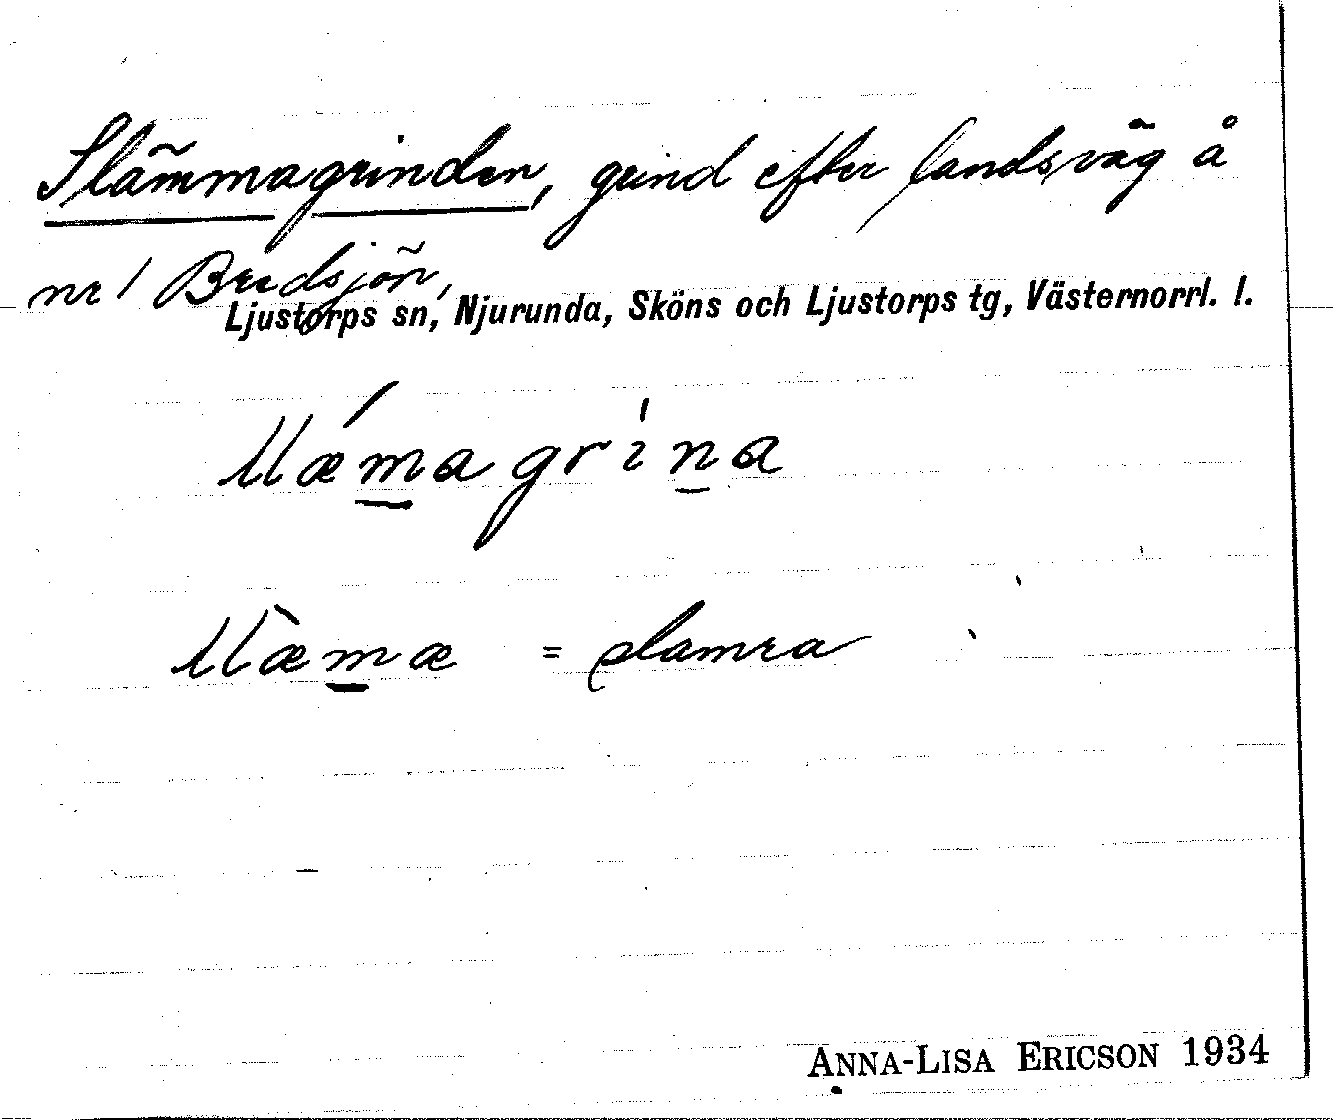 Slämmagrinden, grind efter landsväg å
nr 1 Bredsjön,
Ljustorps sn, Njurunda, Sköns och Ljustorps tg, Västernorrl. l.
= slamra
ANNA-LISA ERICSON 1934